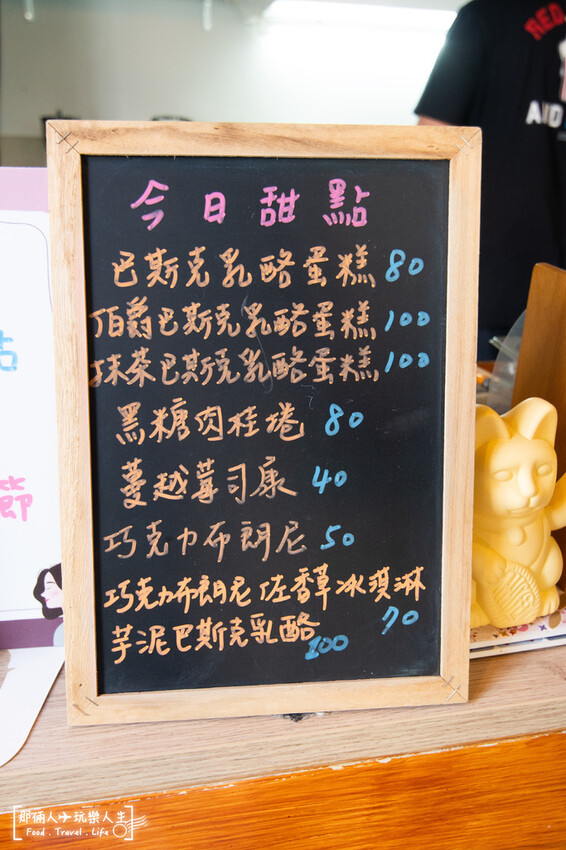 RED
AND
今日甜點
巴斯克乳酪蛋糕 80
伯爵巴斯克乳酪蛋糕 100
抹茶巴斯克乳酪蛋糕 100
黑糖肉桂捲 80
蔓越莓司康 40
巧克力布朗尼 50
巧克力布朗尼佐香草冰淇淋 70
芋泥巴斯克乳酪 100
節
那倆人玩樂人生
Food . Travel . Life